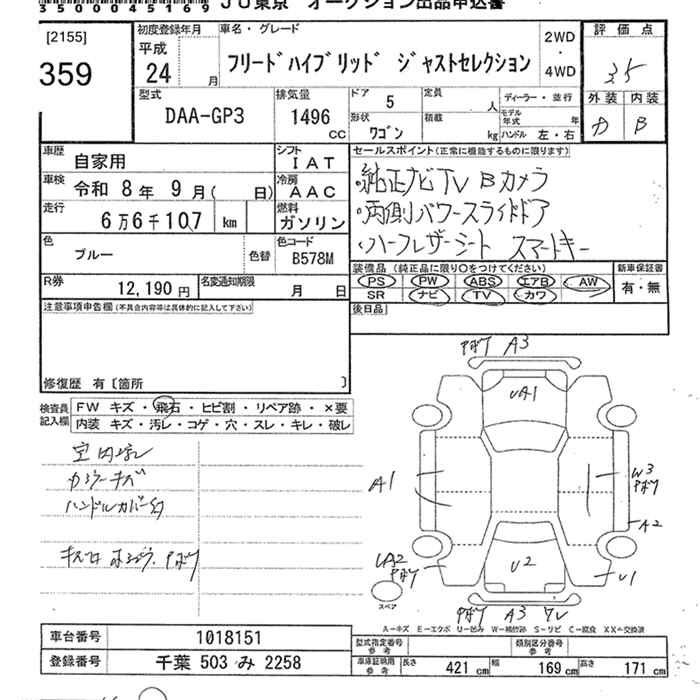 35000045169 JU東京 オークション出品申込書
[2155]
359
初度登録年月
平成
24 月
車名・グレード
フリードハイブリッド ジャストセレクション
2WD
・
4WD
評価点
3.5
外装 内装
B
型式
DAA-GP3
排気量
1496
CC
ドア
5
定員
人
形状
ワゴン
積載
kg
ディーラー・並行
モデル
年式 年
ハンドル 左・右
車歴
自家用
シフト
IAT
車検
令和 8年 9月( 日)
冷房
AAC
走行
6万6千107 km
燃料
ガソリン
色
ブルー
色替
色コード
B578M
R券
12,190円
名変通知期限
月 日
セールスポイント(正常に機能するものに限ります)
・純正ナビTV Bカメラ
・両側パワースライドドア
・ハーフレザーシート スマートキー
装備品(純正品に限り○をつけてください)
PS PW ABS エアB AW
SR ナビ TV カワ
新車保証書
有・無
後日品
注意事項申告欄(不具合内容等は具体的に記入して下さい)
修復歴 有〔箇所 〕
検査員
記入欄
FW キズ・飛石・ヒビ割・リペア跡・×要
内装 キズ・汚レ・コゲ・穴・スレ・キレ・破レ
ハンドルカバー
A3
UA1
A1
W3
A2
UA2
U2
U1
A3
スペア
A=キズ E=エクボ U=凹み W=補修跡 S=サビ C=腐食 XX=交換済
車台番号 1018151
登録番号 千葉 503 み 2258
型式指定番号
参考
類別区分番号
参考
車庫証明用
参考
長さ 421 cm 幅 169 cm 高さ 171 cm